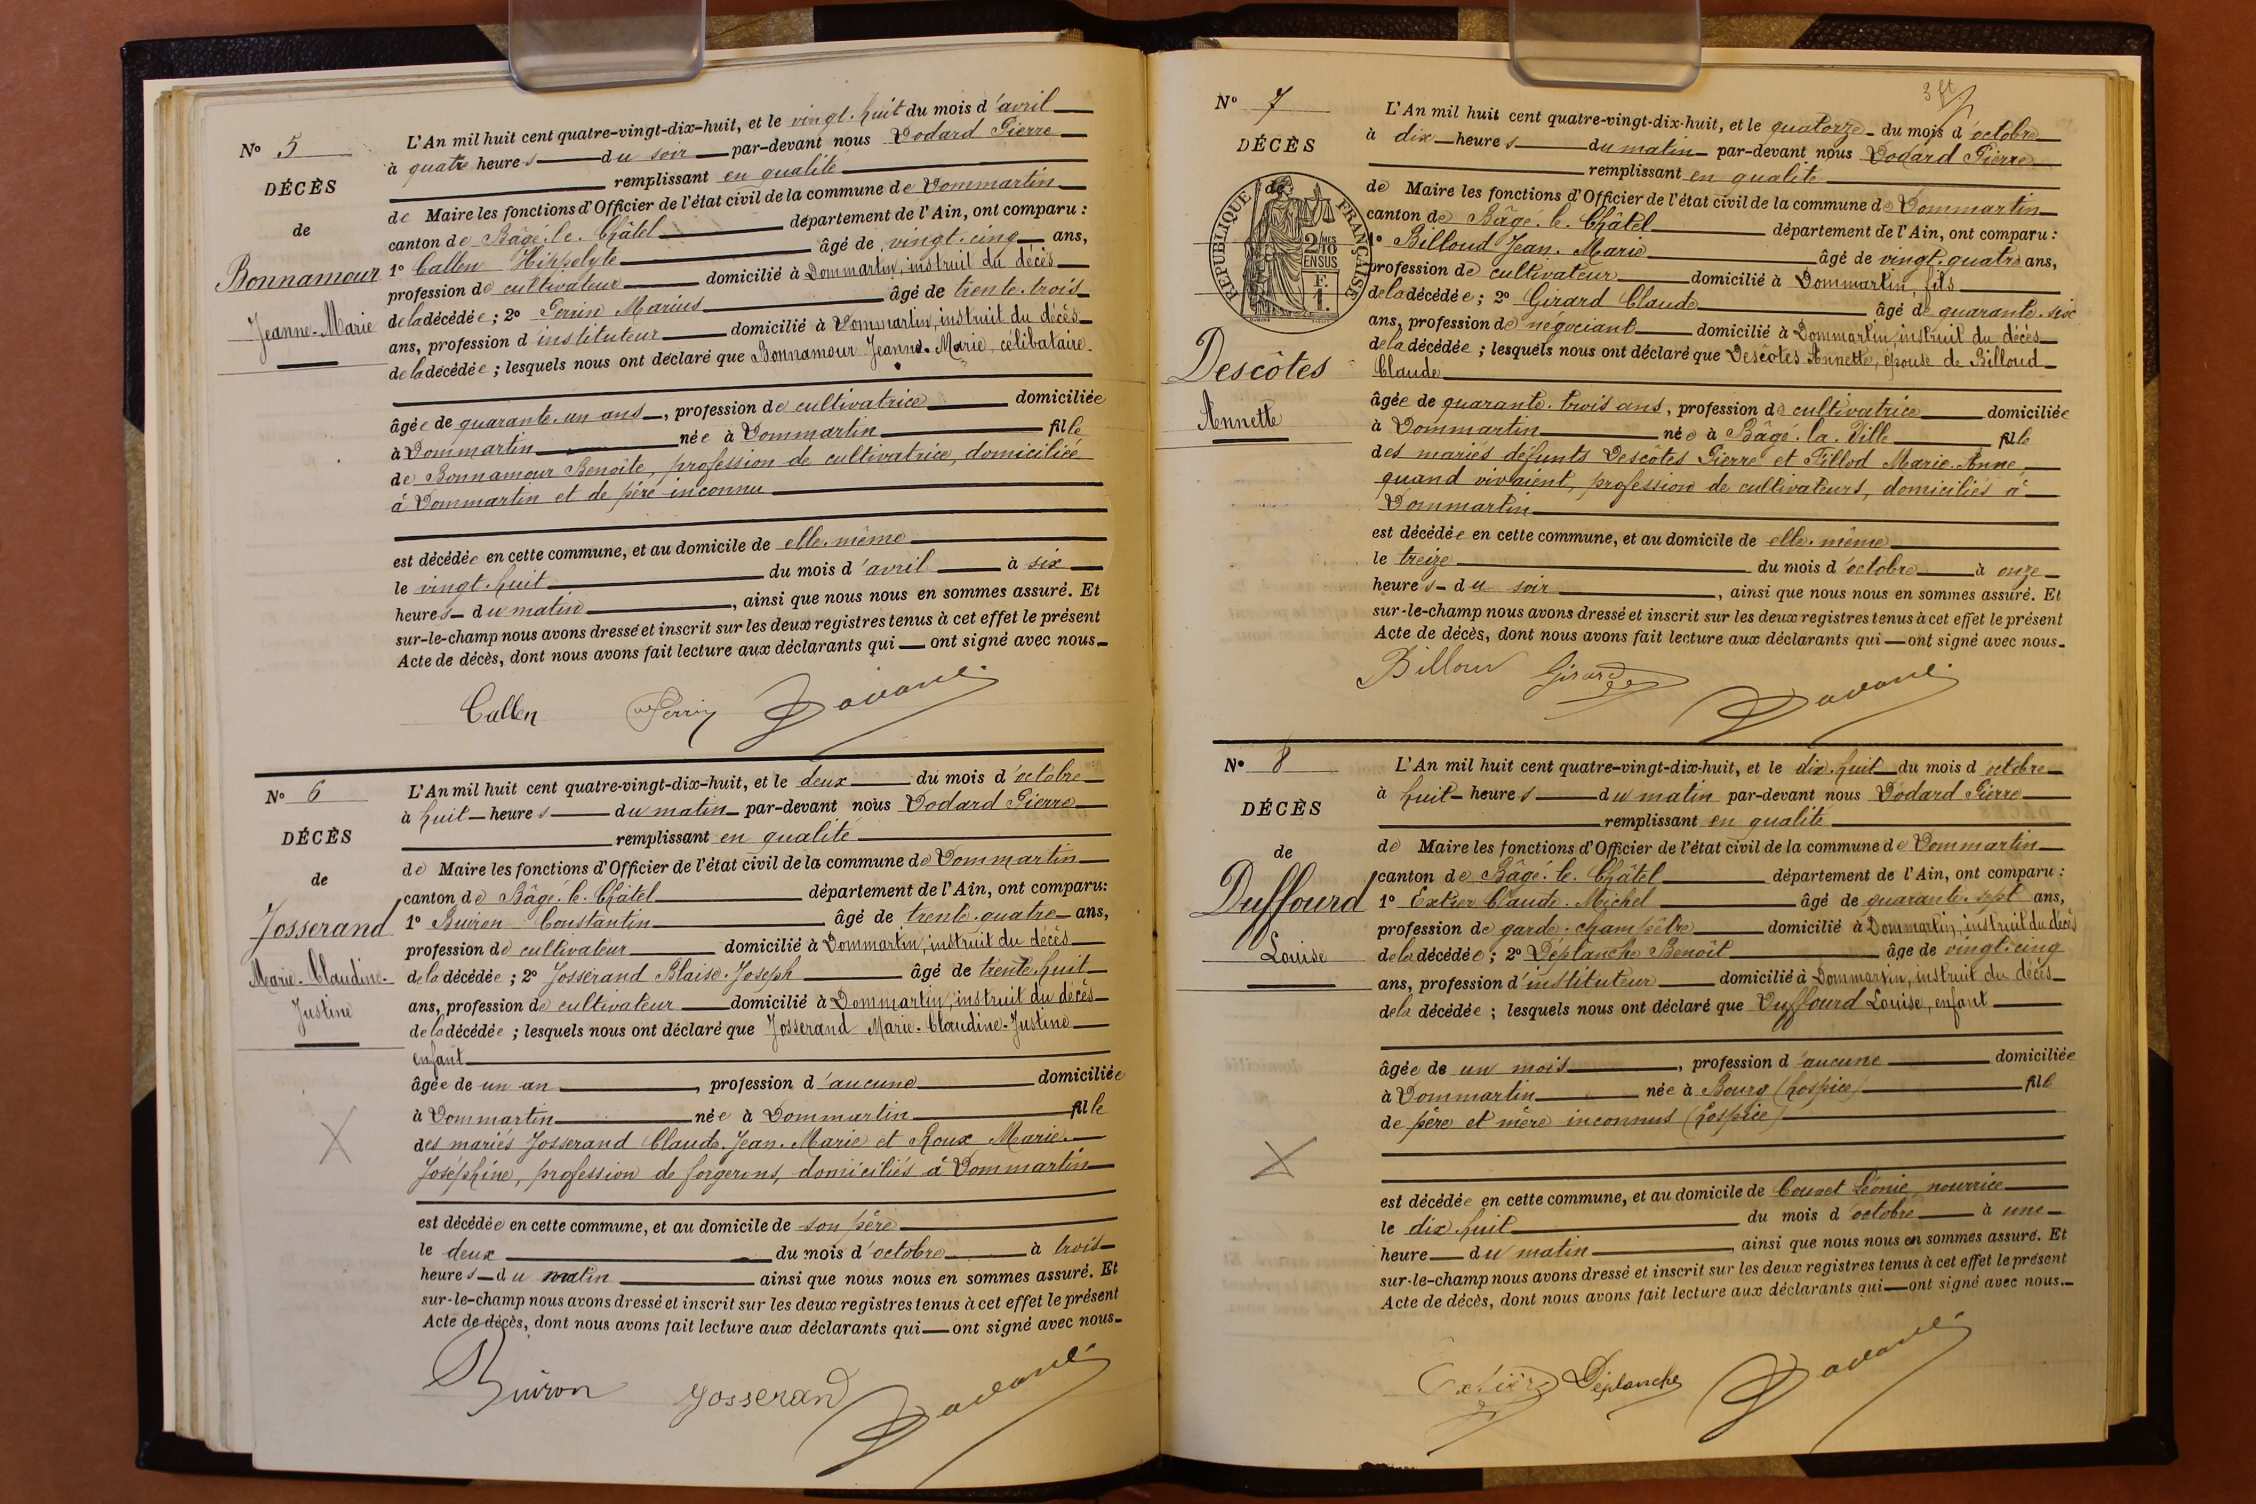 N° 5
DÉCÈS
de
Bonnamour
Jeanne-Marie
L'An mil huit cent quatre-vingt-dix-huit, et le vingt-huit du mois d'avril
à quatre heures du soir par-devant nous Dodard Pierre
remplissant en qualité
de Maire les fonctions d'Officier de l'état civil de la commune de Dommartin
canton de Bâgé-le-Châtel département de l'Ain, ont comparu :
1° Callen Hippolyte âgé de vingt-cinq ans,
profession de cultivateur domicilié à Dommartin, instruit du décès
de la décédée ; 2° Perrin Marius âgé de trente-trois
ans, profession d'instituteur domicilié à Dommartin, instruit du décès
de la décédée ; lesquels nous ont déclaré que Bonnamour Jeanne-Marie, célibataire
âgée de quarante-un ans, profession de cultivatrice domiciliée
à Dommartin née à Dommartin fille
de Bonnamour Benoîte, profession de cultivatrice, domiciliée
à Dommartin et de père inconnu
est décédée en cette commune, et au domicile de elle-même
le vingt-huit du mois d'avril à six
heures du matin, ainsi que nous nous en sommes assuré. Et
sur-le-champ nous avons dressé et inscrit sur les deux registres tenus à cet effet le présent
Acte de décès, dont nous avons fait lecture aux déclarants qui ont signé avec nous
Callen Perrin Dodard
N° 6
DÉCÈS
de
Josserand
Marie-Claudine-
Justine
L'An mil huit cent quatre-vingt-dix-huit, et le deux du mois d'octobre
à huit heures du matin par-devant nous Dodard Pierre
remplissant en qualité
de Maire les fonctions d'Officier de l'état civil de la commune de Dommartin
canton de Bâgé-le-Châtel département de l'Ain, ont comparu :
1° Buiron Constantin âgé de trente-quatre ans,
profession de cultivateur domicilié à Dommartin, instruit du décès
de la décédée ; 2° Josserand Blaise-Joseph âgé de trente-huit
ans, profession de cultivateur domicilié à Dommartin, instruit du décès
de la décédée ; lesquels nous ont déclaré que Josserand Marie-Claudine-Justine
enfant
âgée de un an, profession d'aucune domiciliée
à Dommartin née à Dommartin fille
des mariés Josserand Claude-Jean-Marie et Roux Marie-
Joséphine, profession de forgerons, domiciliés à Dommartin
est décédée en cette commune, et au domicile de son père
le deux du mois d'octobre à trois
heures du matin ainsi que nous nous en sommes assuré. Et
sur-le-champ nous avons dressé et inscrit sur les deux registres tenus à cet effet le présent
Acte de décès, dont nous avons fait lecture aux déclarants qui ont signé avec nous
Buiron Josserand Dodard
N° 7
DÉCÈS
de
RÉPUBLIQUE FRANÇAISE
2/10 EN SUS
F. 1.
Descôtes
Annette
L'An mil huit cent quatre-vingt-dix-huit, et le quatorze du mois d'octobre
à dix heures du matin par-devant nous Dodard Pierre
remplissant en qualité
de Maire les fonctions d'Officier de l'état civil de la commune de Dommartin
canton de Bâgé-le-Châtel département de l'Ain, ont comparu :
1° Billoud Jean-Marie âgé de vingt-quatre ans,
profession de cultivateur domicilié à Dommartin, fils
de la décédée ; 2° Girard Claude âgé de quarante-six
ans, profession de négociant domicilié à Dommartin, instruit du décès
de la décédée ; lesquels nous ont déclaré que Descôtes Annette, épouse de Billoud
Claude
âgée de quarante-trois ans, profession de cultivatrice domiciliée
à Dommartin née à Bâgé-la-Ville fille
des mariés défunts Descôtes Pierre et Pillod Marie-Anne,
quand vivaient, profession de cultivateurs, domiciliés à
Dommartin
est décédée en cette commune, et au domicile de elle-même
le treize du mois d'octobre à onze
heures du soir, ainsi que nous nous en sommes assuré. Et
sur-le-champ nous avons dressé et inscrit sur les deux registres tenus à cet effet le présent
Acte de décès, dont nous avons fait lecture aux déclarants qui ont signé avec nous
Billoud Girard Dodard
N° 8
DÉCÈS
de
Duffourd
Louise
L'An mil huit cent quatre-vingt-dix-huit, et le dix-huit du mois d'octobre
à huit heures du matin par-devant nous Dodard Pierre
remplissant en qualité
de Maire les fonctions d'Officier de l'état civil de la commune de Dommartin
canton de Bâgé-le-Châtel département de l'Ain, ont comparu :
1° Extier Claude-Michel âgé de quarante-sept ans,
profession de garde-champêtre domicilié à Dommartin, instruit du décès
de la décédée ; 2° Déplanche Benoît âgé de vingt-cinq
ans, profession d'instituteur domicilié à Dommartin, instruit du décès
de la décédée ; lesquels nous ont déclaré que Duffourd Louise, enfant
âgée de un mois, profession d'aucune domiciliée
à Dommartin née à Bourg (hospice) fille
de père et mère inconnus (hospice)
est décédée en cette commune, et au domicile de Léonie, nourrice
le dix-huit du mois d'octobre à une
heure du matin, ainsi que nous nous en sommes assuré. Et
sur-le-champ nous avons dressé et inscrit sur les deux registres tenus à cet effet le présent
Acte de décès, dont nous avons fait lecture aux déclarants qui ont signé avec nous
Extier Déplanche Dodard